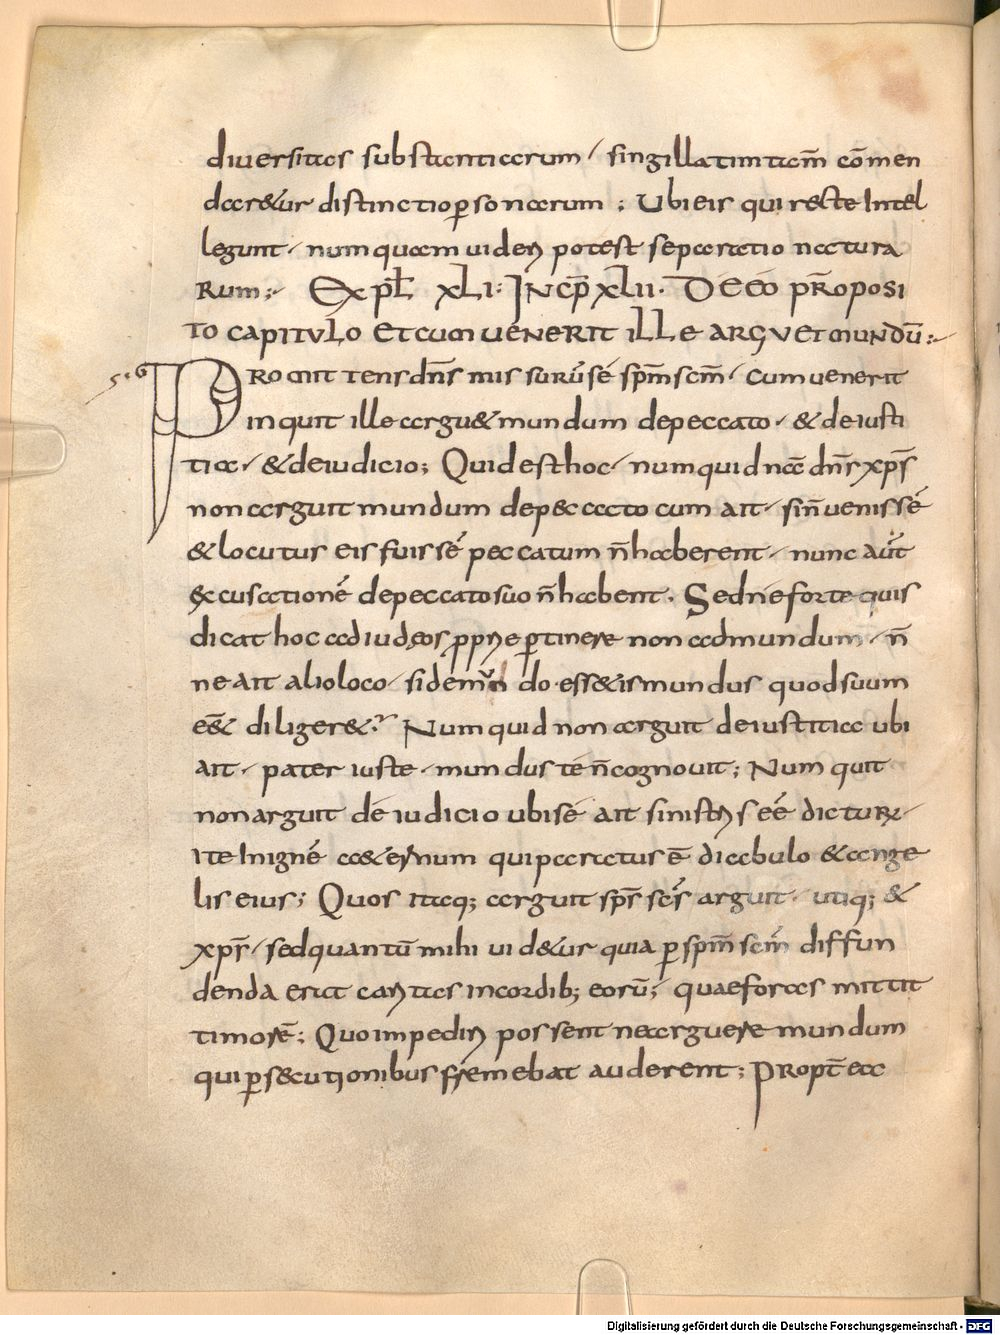 diuersitas substantiarum / singillatim tam̄ cōmen
dar&ur distinctio ꝑsonarum ; Ubi eis qui recte Intel
legunt / numquam uideri potest separatio natura
Rum ;/ Expl̄ xLI: INcp̄ xLII. DE EO pR̄oposi
TO CAPITVLO ET CUM VENERIT ILLE ARGVET MUNDŪ :/
PROMITTENS dn̄s missurūse sp̄m scm̄ / cum uenerit
inquit ille argu& mundum depeccato / & deiusti
tia / & deiudicio ; Quid est hoc / numquid na dn̄s xp̄s
non arguit mundum depeccato cum ait / sin̄ uenissē
& locutus eis fuissē peccatum n̄ haberent / nunc aūt
excusationē depeccato suo n̄ habent . Sed ne forte quis
dicat hoc ad iudęos ꝓprie ꝑtinere non admundum / n̄
ne ait alioloco / si demundo ess&is mundus quod suum
eē& diliger& ? Numquid non arguit deiustitia ubi
ait / pater iuste / mundus te n̄ cognouit ; Numquit
non arguit de iudicio ubi se ait sinistris eē dicturū /
ite Inignē a&ernum qui paratus ē diabulo & ange
lis eius ; Quos itaq; arguit sp̄s scs̄ arguit / utiq; &
xp̄s / sed quantū mihi uid&ur quia ꝑ sp̄m scm̄ diffun
denda erat caritas incordib; eorū ; quae foras mittit
timorē ; Quo impediri possent ne arguere mundum
qui ꝑsecutionibus fremebat auderent ; Propt̄ ea
5·6
Digitalisierung gefördert durch die Deutsche Forschungsgemeinschaft - DFG